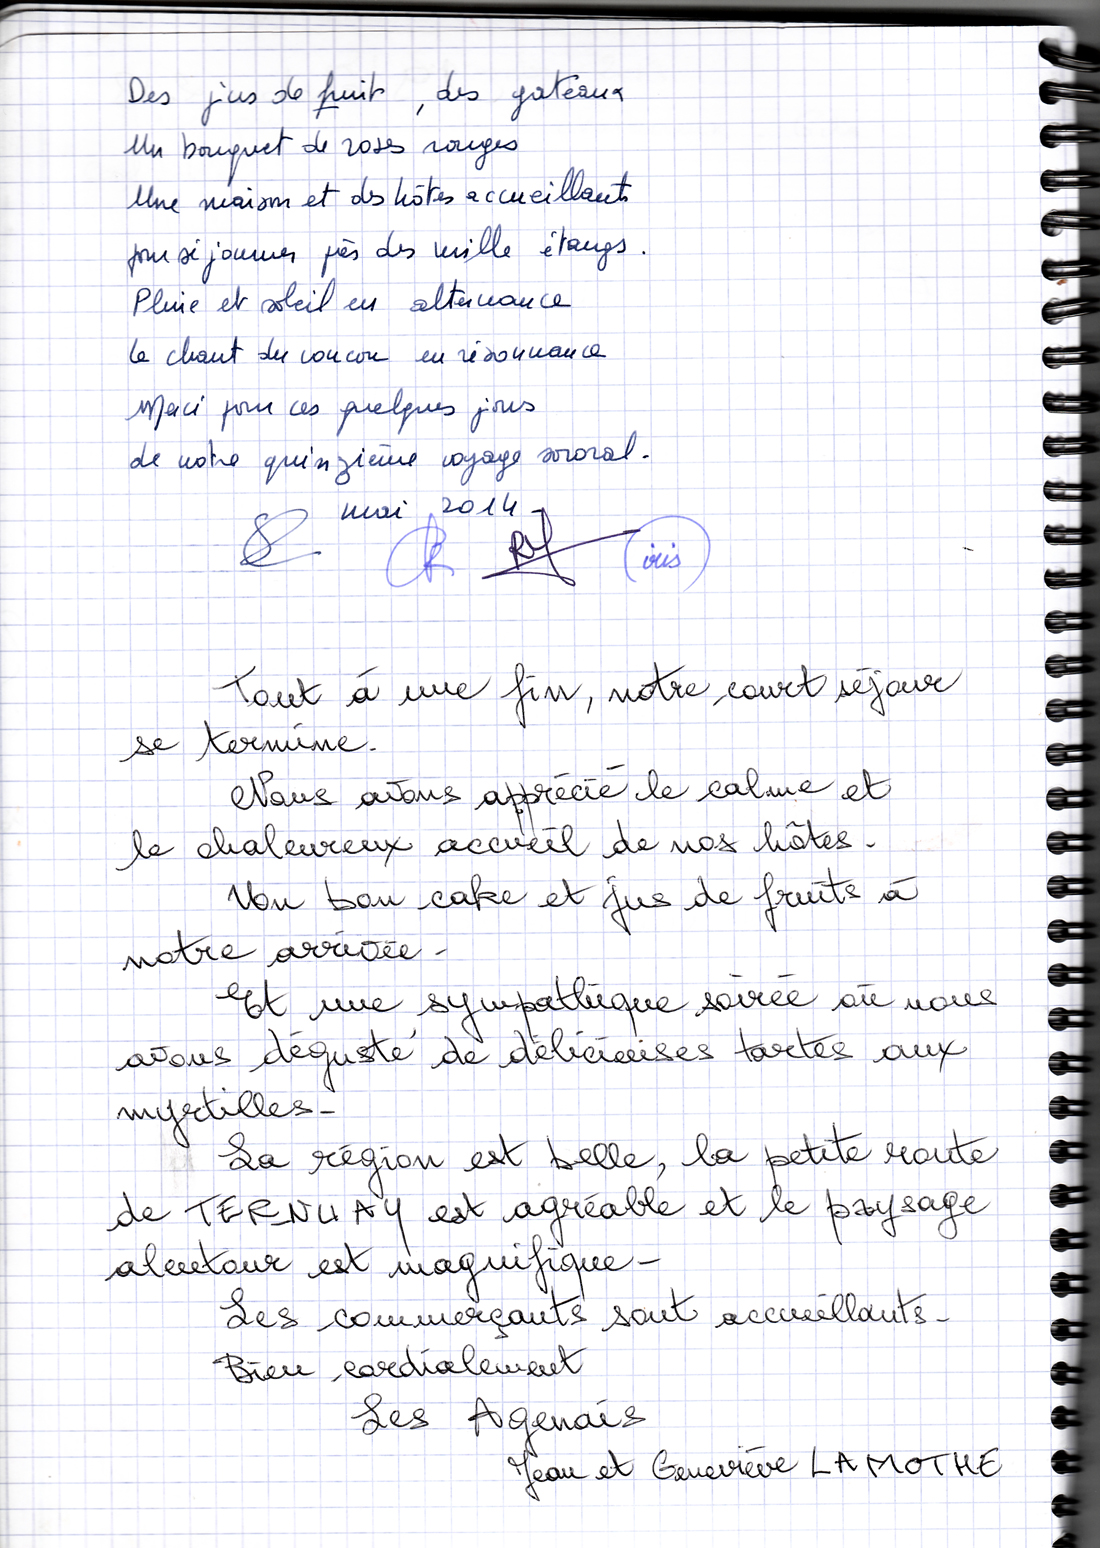 Des jus de fruit, des gateaux
Un bouquet de roses rouges
Une maison et des hôtes accueillants
pour séjourner près des mille étangs.
Pluie et soleil en alternance
le chant du coucou en résonnance
Merci pour ces quelques jours
de notre quinzième voyage sororal.
mai 2014
iris
Tout à une fin, notre court séjour
se termine.
Nous avons apprécié le calme et
le chaleureux accueil de nos hôtes.
Un bon cake et jus de fruits à
notre arrivée -
Et une sympathique soirée où nous
avons dégusté de délicieuses tartes aux
myrtilles -
La région est belle, la petite route
de TERNUAY est agréable et le paysage
alentour est magnifique -
Les commerçants sont accueillants -
Bien cordialement
Les Agenais
Jean et Geneviève LAMOTHE